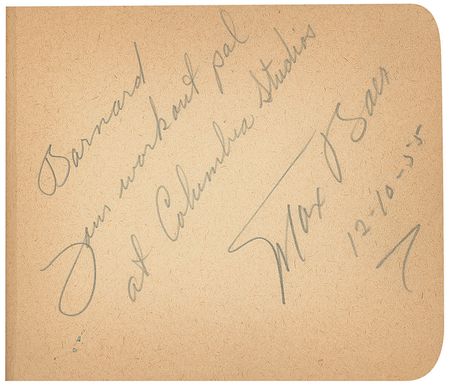 Barnard
Your workout pal
at Columbia Studios
Max Baer
12-10-55